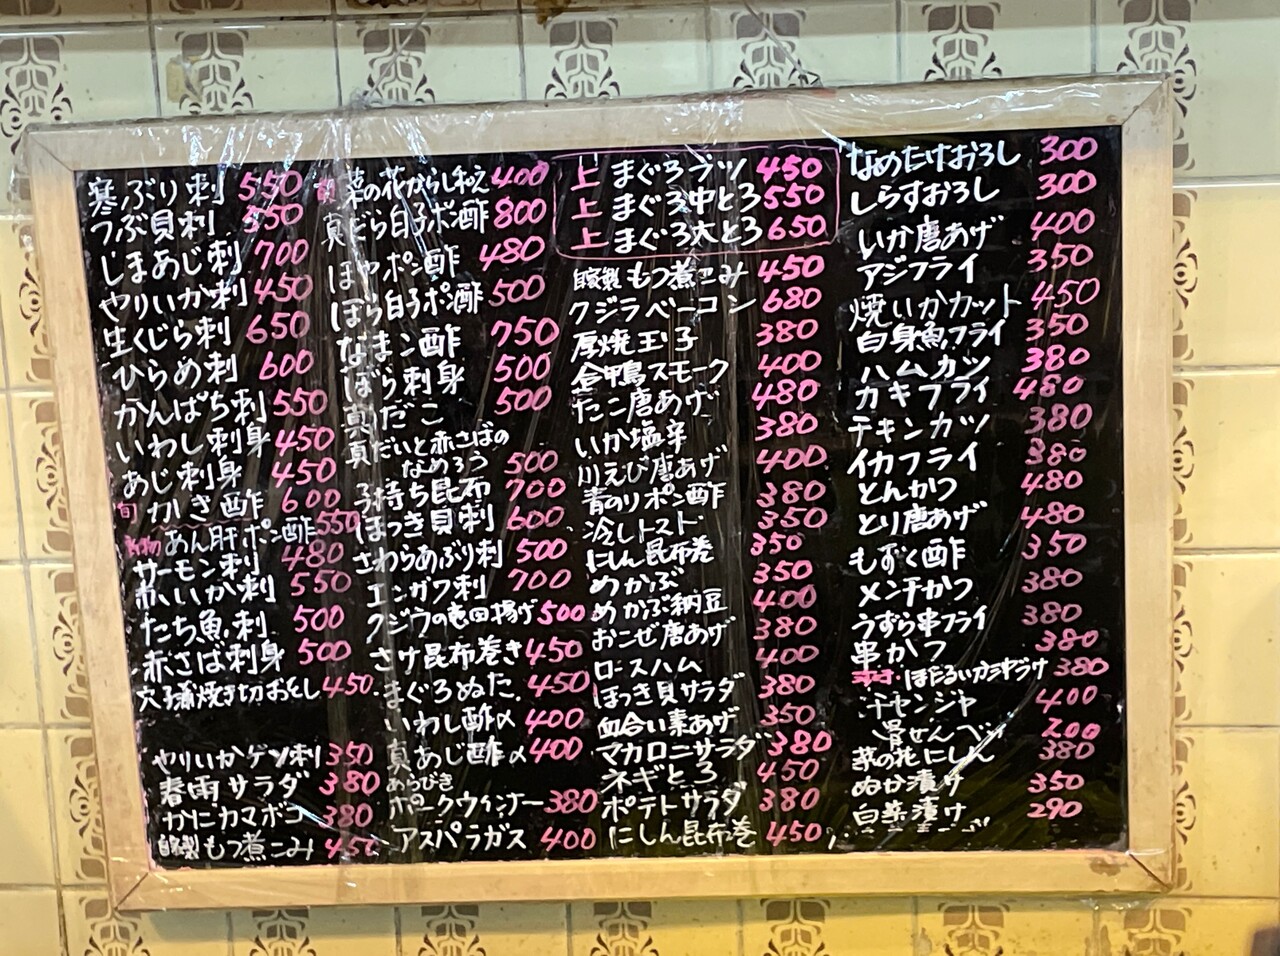 寒ぶり刺 550
つぶ貝刺 550
しまあじ刺 700
やりいか刺 450
生くじら刺 650
ひらめ刺 600
かんぱち刺 550
いわし刺身 450
あじ刺身 450
旬 かき酢 600
あん肝ポン酢 550
サーモン刺 480
いか刺 550
たち魚刺 500
赤さば刺身 500
穴子蒲焼き切おとし 450
やりいかゲソ刺 350
春雨サラダ 380
かにカマボコ 380
自家製 もつ煮こみ 450
菜の花からし和え 400
真だら白子ポン酢 800
ほやポン酢 480
ぼら白子ポン酢 500
なまこ酢 750
ぼら刺身 500
真だこ 500
真だいと赤さばの
なめろう 500
子持ち昆布 700
ほっき貝刺 600
さわらあぶり刺 500
エンガワ刺 700
クジラの竜田揚げ 500
さけ昆布巻き 450
まぐろぬた 450
いわし酢〆 400
真あじ酢〆 400
あらびき
ポークウィンナー 380
アスパラガス 400
上 まぐろブツ 450
上 まぐろ中とろ 550
上 まぐろ大とろ 650
自家製 もつ煮こみ 450
クジラベーコン 680
厚焼玉子 380
合鴨スモーク 400
たこ唐あげ 480
いか塩辛 380
川えび唐あげ 400
青のりポン酢 380
冷しトマト 350
にしん昆布巻 350
めかぶ 350
めかぶ納豆 400
おこぜ唐あげ 380
ロースハム 400
ほっき貝サラダ 380
血合い素あげ 350
マカロニサラダ 380
ネギとろ 450
ポテトサラダ 380
にしん昆布巻 450
なめたけおろし 300
しらすおろし 300
いか唐あげ 400
アジフライ 350
焼いかカット 450
白身魚フライ 350
ハムカツ 380
カキフライ 480
チキンカツ 380
イカフライ 380
とんかつ 480
とり唐あげ 480
もずく酢 350
メンチかつ 380
うずら串フライ 380
串かつ 380
ほたるいか 380
チャンジャ 400
骨せんべい 200
菜の花にしん 380
ぬか漬け 350
白菜漬け 290